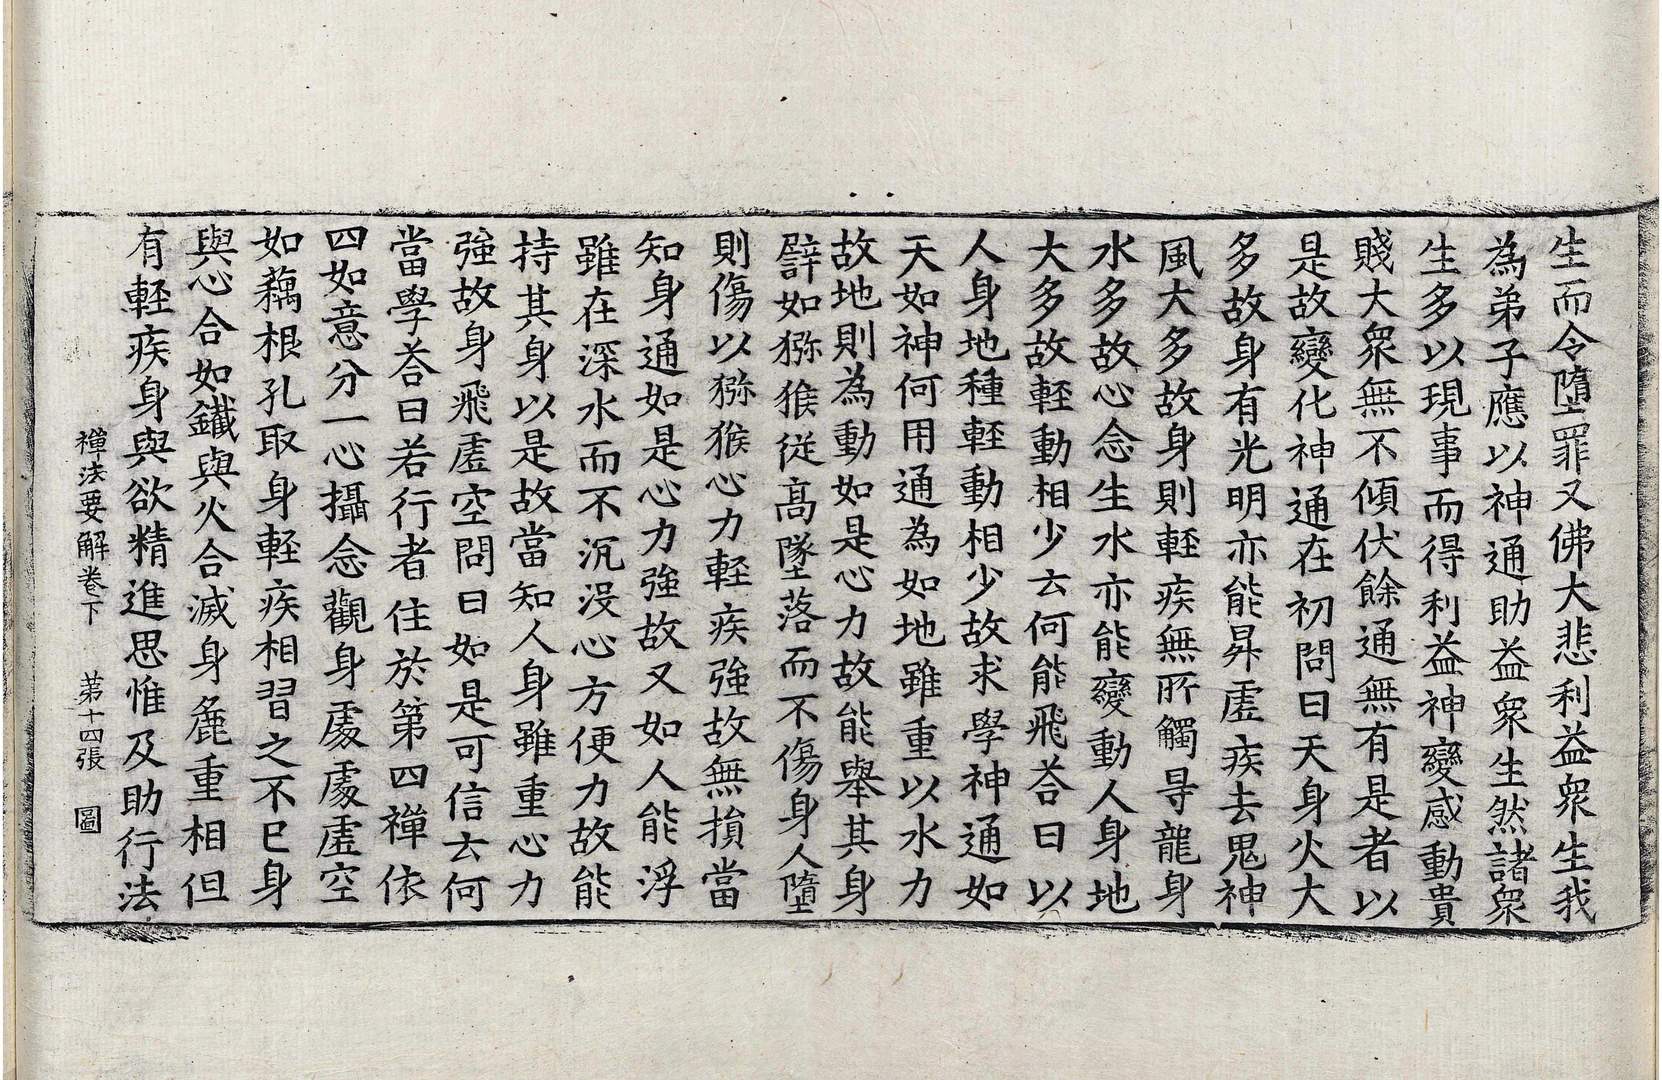 生而令墮罪又佛大悲利益衆生我
為弟子應以神通助益衆生然諸衆
生多以現事而得利益神變感動貴
賤大衆無不傾伏餘通無有是者以
是故變化神通在初問曰天身火大
多故身有光明亦能昇虛疾去鬼神
風大多故身則輕疾無所觸㝵龍身
水多故心念生水亦能變動人身地
大多故輕動相少云何能飛荅曰以
人身地種輕動相少故求學神通如
天如神何用通為如地雖重以水力
故地則為動如是心力故能舉其身
譬如猕猴從高墜落而不傷身人墮
則傷以猕猴心力輕疾強故無損當
知身通如是心力強故又如人能浮
雖在深水而不沉没心方便力故能
持其身以是故當知人身雖重心力
強故身飛虛空問曰如是可信云何
當學荅曰若行者住於第四禪依
四如意分一心攝念觀身處處虛空
如藕根孔取身輕疾相習之不已身
與心合如鐵與火合滅身麁重相但
有輕疾身與欲精進思惟及助行法
禪法要解卷下 第十四張 圖